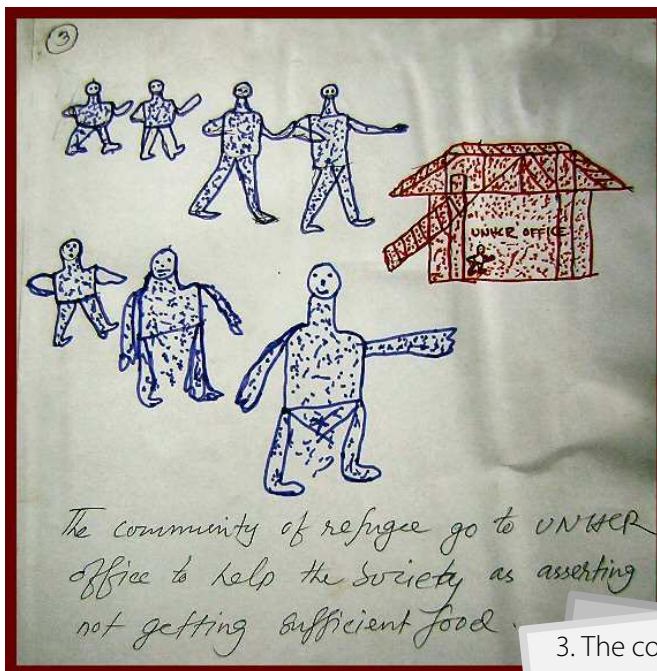 3
UNHCR OFFICE
The community of refugee go to UNHCR
office to help the society as asserting
not getting sufficient food.
3. The co